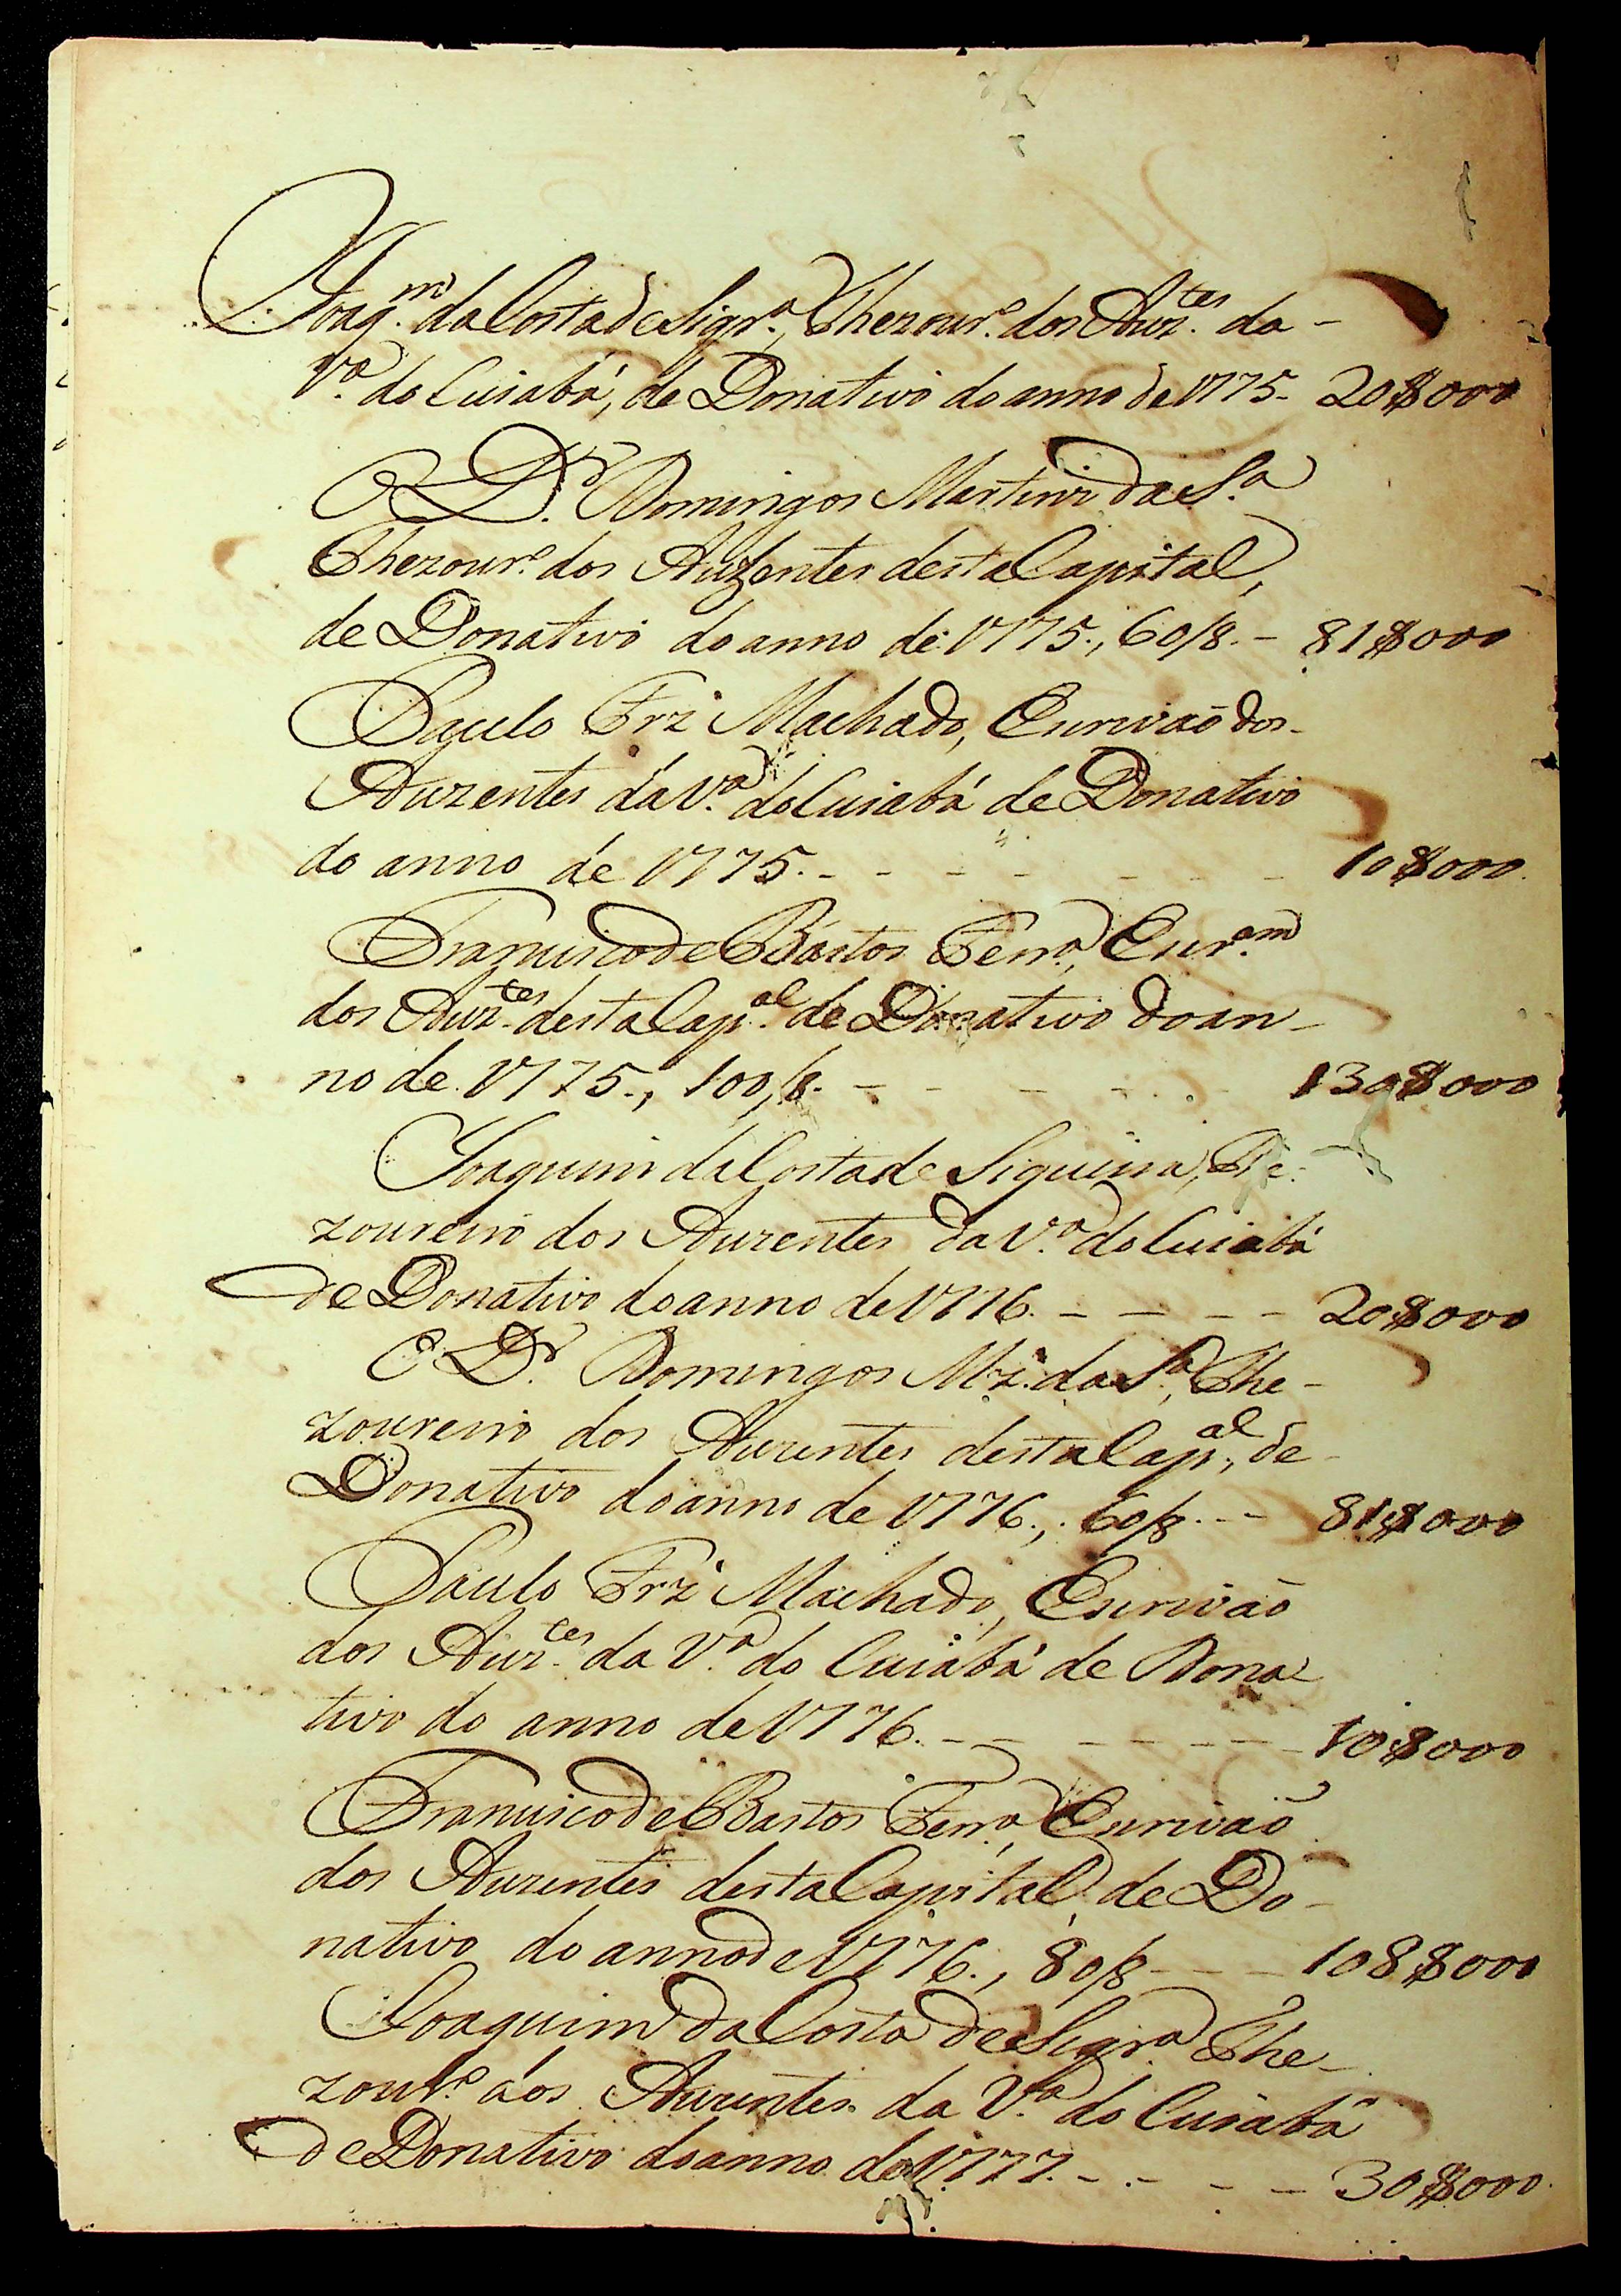 Joaq.m da Costa de Siqr.a, Thezour.o dos Auz.tes da -
V.a do Cuiabá, de Donativo do anno de 1775 - 20$000
O D.r Domingos Martins da S.a
Thezour.o dos Auzentes desta Capital,
de Donativo do anno de 1775., 60/8.- 81$000
Paulo Frz' Machado, Escrivaõ dos-
Auzentes da V.a do Cuiabá de Donativo
do anno de 1775. - - - - - - - 10$000
Francisco de Bastos Ferr.a, Escr.am
dos Auz.tes desta Cap.al de Donativo do an-
no de 1775., 100/8. - - - - - 130$000
Joaquim da Costa de Siqueira, The-
zoureiro dos Auzentes da V.a do Cuiabá
de Donativo do anno de 1776. - - - - 20$000
O D.r Domingos Mz'. da S.a, The-
zoureiro dos Auzentes desta Cap.al, de
Donativo do anno de 1776., 60/8. - - 81$000
Paulo Frz' Machado, Escrivaõ
dos Auz.tes da V.a do Cuiabá de Dona-
tivo do anno de 1776. - - - - - - 10$000
Francisco de Bastos Ferr.a, Escrivaõ
dos Auzentes desta Capital de Do-
nativo do anno de 1776., 80/8 - - - 108$000
Joaquim da Costa de Siqr.a The-
zour.o dos Auzentes da V.a do Cuiabá
de Donativo do anno de 1777. - - - - 30$000